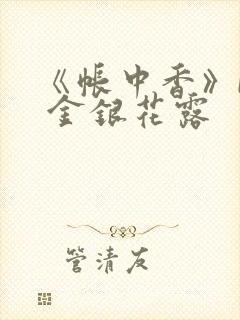 《帐中香》
金银花露
管清友